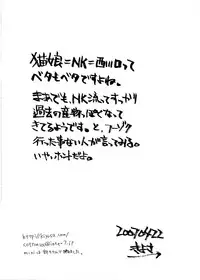 猫娘=NK=西川口って
ベタもベタですよね。
まあでも、NK流ってすっかり
過去の産物っぽくなって
きてるようです。と、フーゾク
行った事ない人が言ってみる。
いや、ホントだよ。
2007.04.22
きよさ